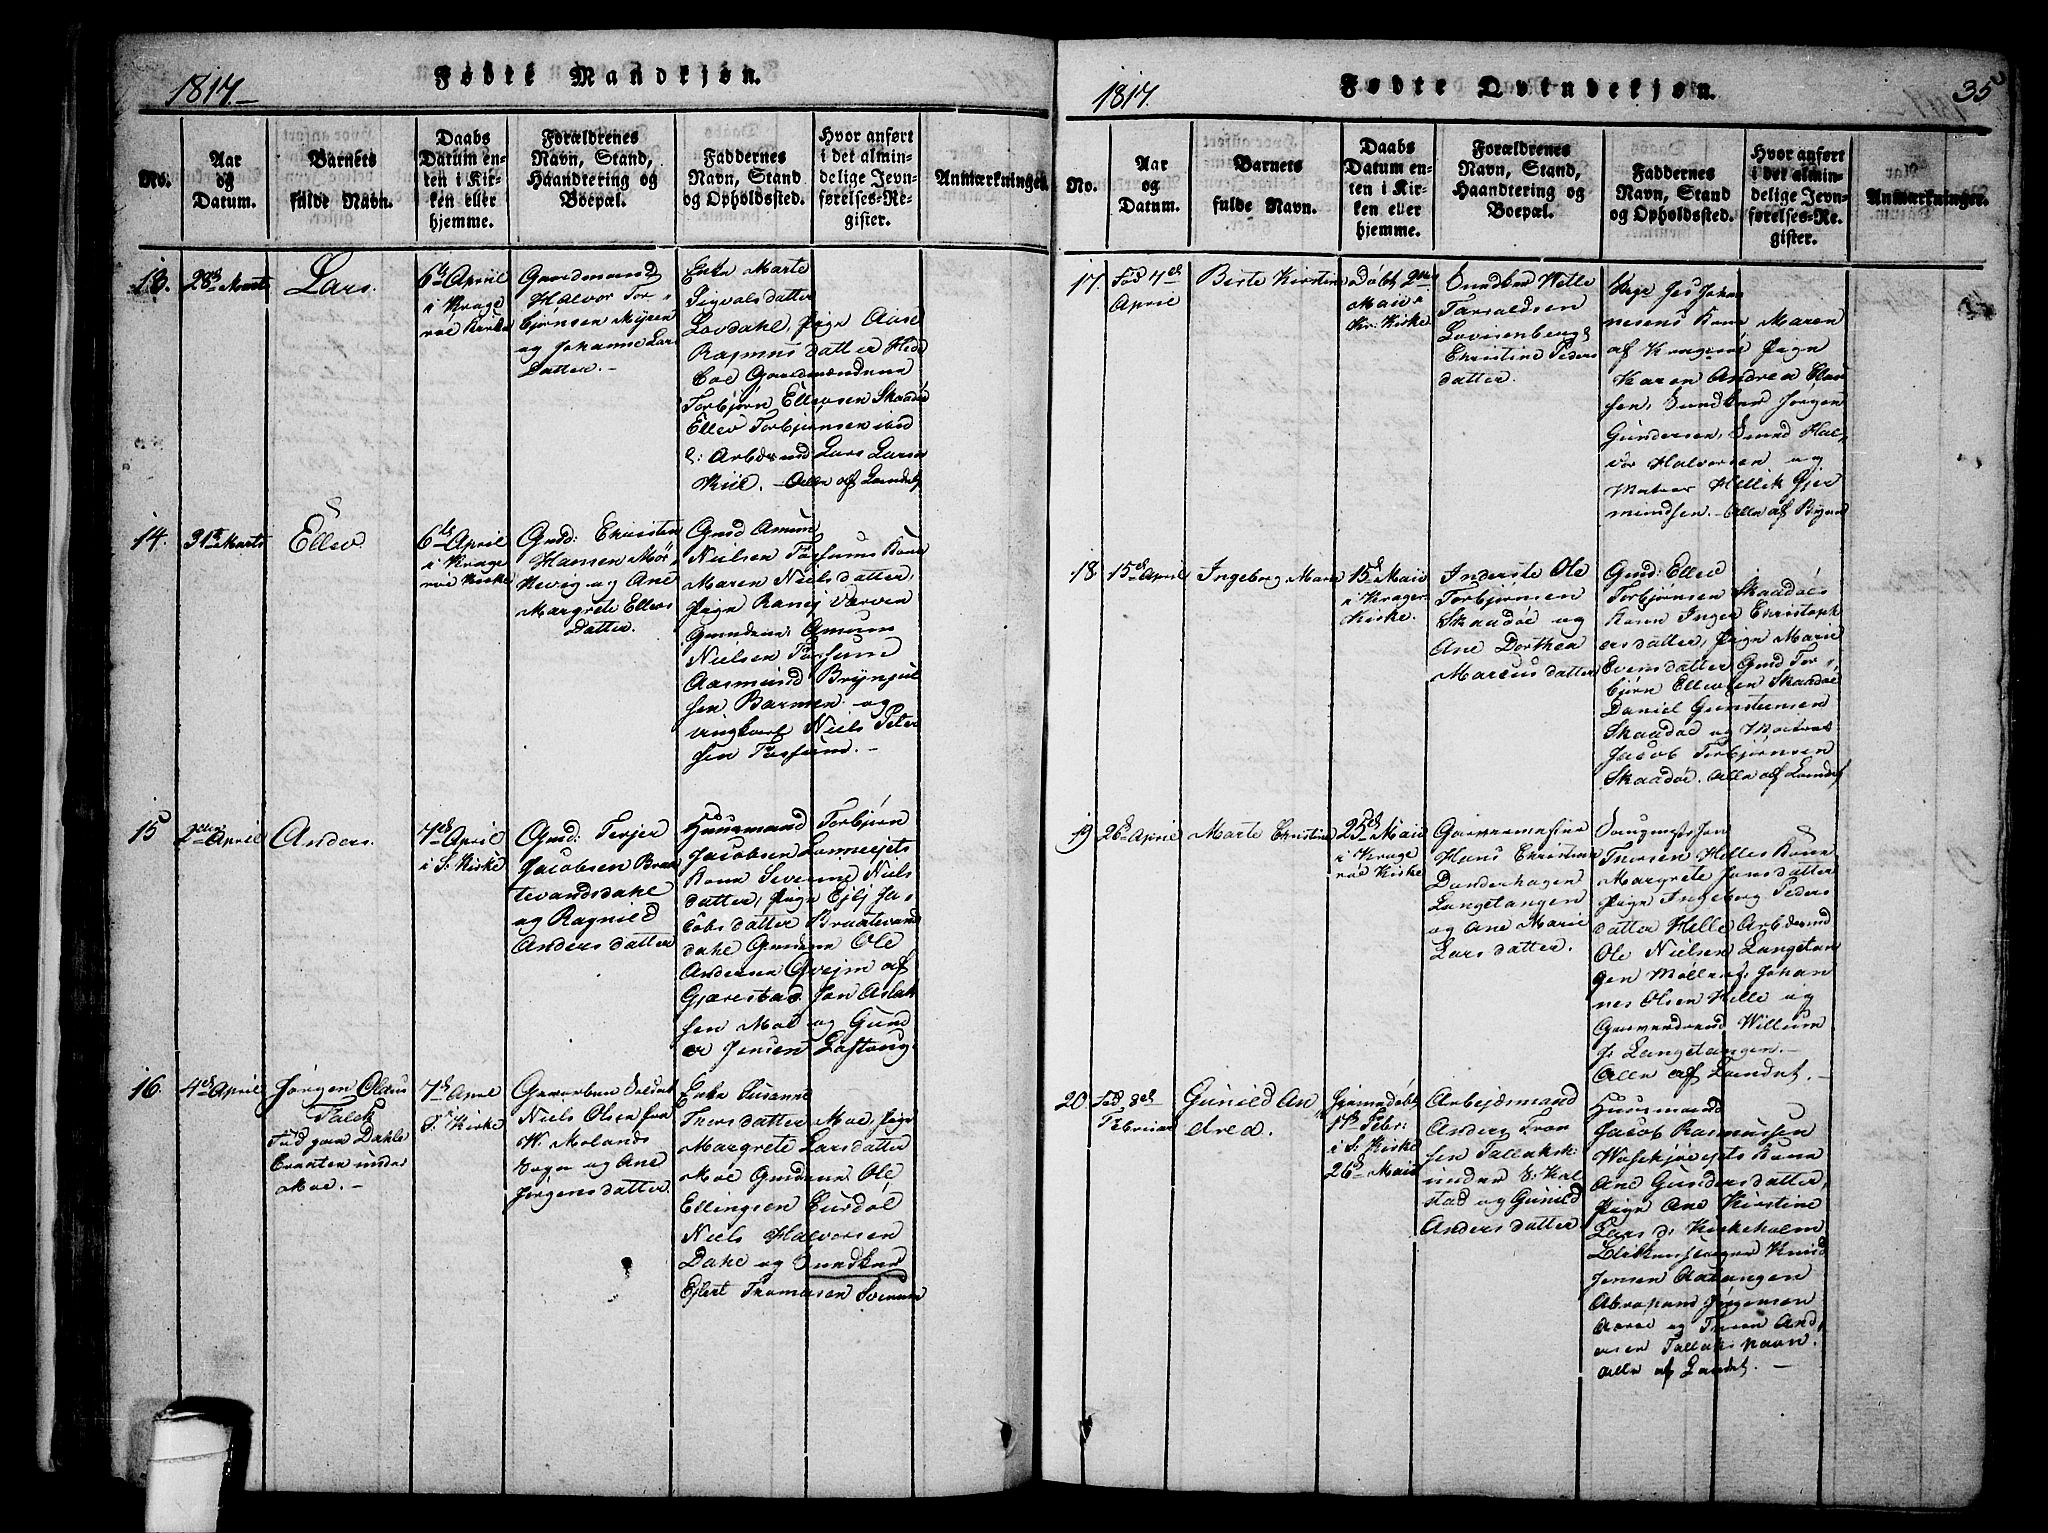 1817.
Fødte Mandkjøn.
No.
Aar
og
Datum.
Barnets
fulde Navn.
Daabs
Datum en-
ten i Kir-
ken eller
hjemme.
Forældrenes
Navn, Stand,
Haandtering og
Boepæl.
Faddernes
Navn, Stand
og Opholdssted.
Hvor anført
i det almin-
delige Jevn-
førelses-Re-
gister.
Anmærkninger.
13.
28de Marts
Lars.
6te April
i Krage
röe Kirke
Gaardmand
Halvor Tor-
björnsen Myren
og Johanne Lars
Datter.
Enke Marte
Sigvalsdatter
Lovdahl, Pige Aase
Rasmusdatter Hede
boe Gaardmændene
Torbjörn Ellevsen Skaadöe
Ellev Torbjörnsen ibid
Arbdsmd Lars Larsen
Kiil. Alle af Landet
14.
31te Marts
Ellev.
6te April
i Krage
röe Kirke
Gmd: Christen
Hansen Mör-
Kevig og Ane
Margrete Ellevs
Datter.
Gmd Amun
Nielsen Fosfums Kone
Maren Nielsdatter,
Pige Ranej Værven
Gmdene Amun
Nielsen Fosfum
Aasmund Brynjul
sen Barmen og
Ungkarl Niels Peter
sen Fosfum.
15
2den April
Anders.
7de April
i S: Kirke
Gmd: Terjer
Jacobsen Braa
tevandsdahl
og Ragnild
Andersdatter
Huusmand Torbjörn
Jacobsen Lonneiets
Kone Severine Niels
datter, Pige Eflj Ja-
cobsdatter Braatevand
dahl Gmdene Ole
Andersen Qvejm af
Gjerestad Jon Aslak
sen Moe og Gund
er Jensen Loftoug.
16.
4de April
Jörgen Olaus
Falck
Föd paa Dahls
Evantet under
Moe.
7de April
S. Kirke
Gevorben Soldat
Niels Olsen fra
W. Molands
Sogn og Ane
Jörgensdatter
Enke Susanne
Thorsdatter Moe, Pige
Margrete Larsdatter
Moe Gmdene Ole
Ellingsen Eurdöl
Niels Halvorsen
Dahl og Sundkar
Eflert Thomassen Svenum
1817.
Fødte Qvindekjøn.
35
No.
Aar
og
Datum.
Barnets
fulde Navn.
Daabs
Datum en-
ten i Kir-
ken eller
hjemme.
Forældrenes
Navn, Stand,
Haandtering og
Boepæl.
Faddernes
Navn, Stand
og Opholdssted.
Hvor anført
i det almin-
delige Jevn-
førelses-Re-
gister.
Anmærkninger.
17.
Föd 4de
April
Berte Kirstine
döbt 2den
Maii i
Kr: Kirke
Sundkar Wetle
Tarjaldsen
Lovisenberg &
Christine Peders
datter.
Jes Johan
nesens Kone Maren
af Krageröe Pige
Karen Andrea Clau
sen, Sundkar Jörgen
Gundersen, Smed Hal-
vor Halvorsen og
Matros Hellik Gjer
mundsen. Alle af Byen
18
15de April
Ingeborg Marie
15de Maii
i Krager
Kirke.
Inderste Ole
Torbjörnsen
Skaadöe og
Ane Dorthea
Marcusdatter
Gmd: Ellev
Torbjörnsen Skaadöes
Kone Inger Christoph
ersdatter, Pige Marie
Evensdatter Gmd Tor-
björn Ellevsen Skaadöe
Daniel Gunstensen
Skaadöe og Matros
Jacob Torbjörnsen
Skaadöe. Alle af Landet
19
26de April
Marte Christine
25de Maii
i Krage
röe Kirke
Garvermester
Hans Christian
Donderhagen
Langetangen
og Ane Marie
Larsdatter.
Jon
Thorsen Helles Kone
Margrete Jonsdatter
Pige Ingeborg Peders
datter Helle Arbdsmd
Ole Nielsen Langetan
gen Möller Johan
nes Olsen Helle og
Garversvend Willum
Langetangen.
Alle af Landet.
20
Föd 3de
Februar
Gunild An
drea.
hjemdöbt
17de Febr:
i S. Kirke
26de Maii
Arbejdsmand
Anders Tron
sen Tallaksh:
under S: Kal
stad og Gunild
Andersdatter
Huusmand
Jacob Rasmussen
Kone
Ane Gundersdatter,
Pige Ane Kirstine
Lars d: Kirkeholm
Knud
Jensen
Abraham Jörgensen
Aaröe og And,
ersen Tallakshavn.
Alle af Landet.